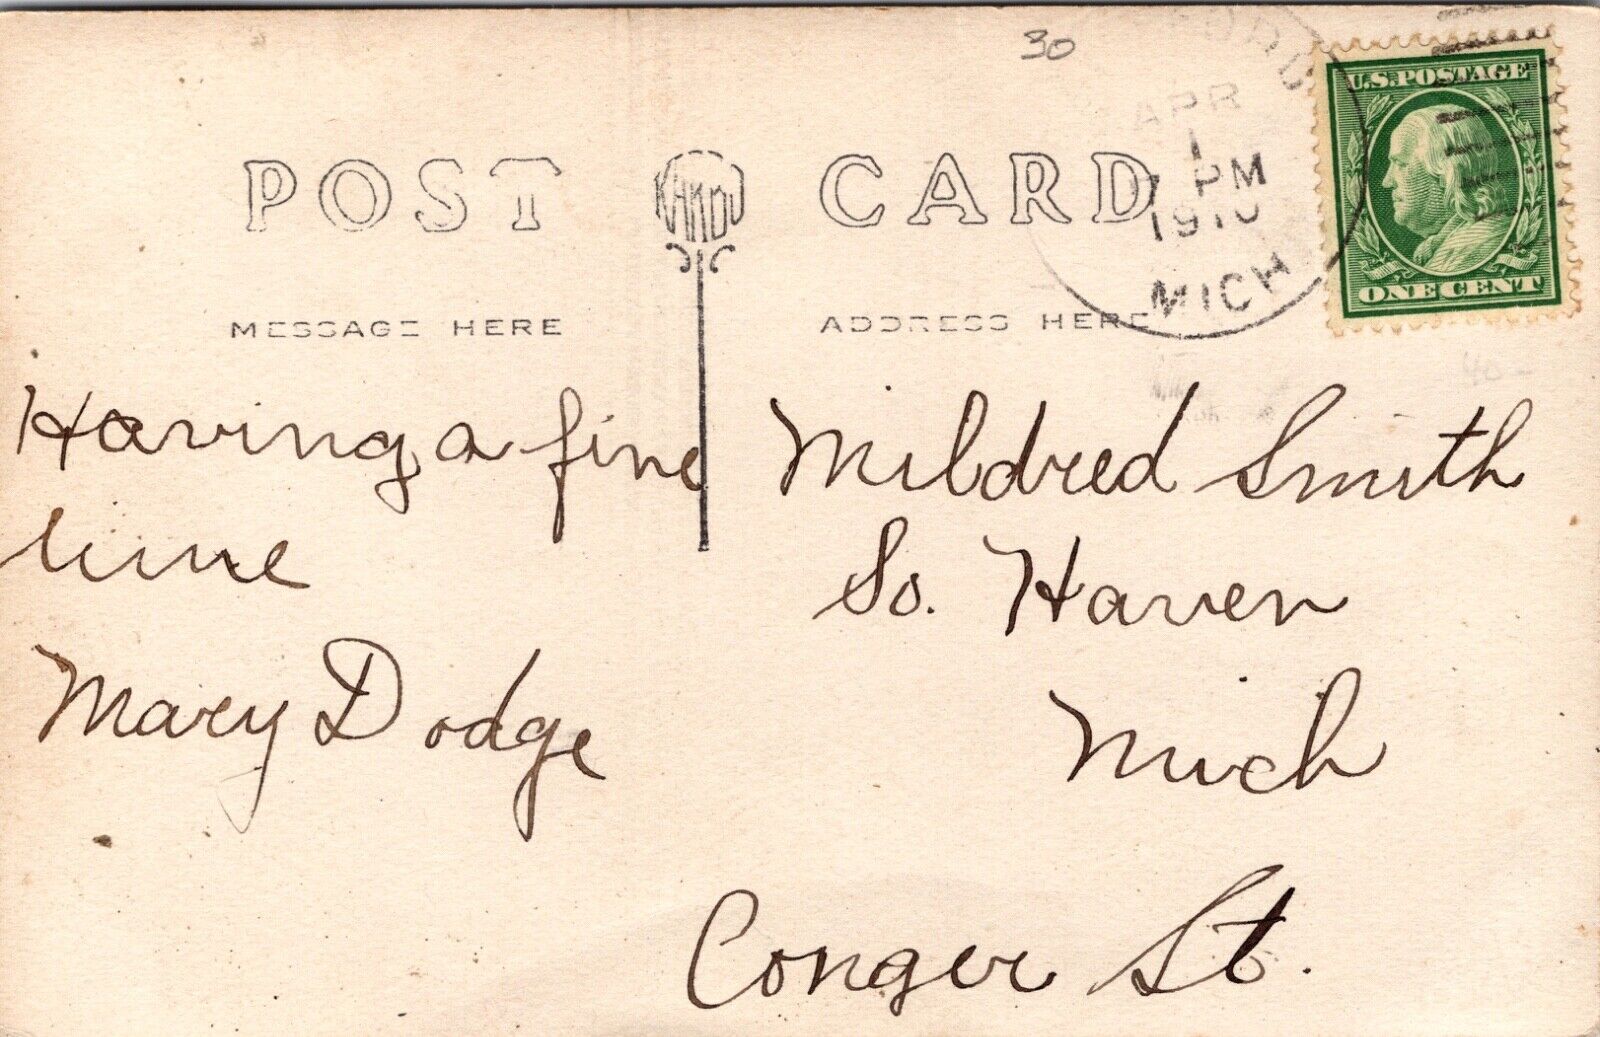 30
APR
1
7 PM
1910
MICH
U.S. POSTAGE
ONE CENT
POST CARD
KARDU
MESSAGE HERE
ADDRESS HERE
Having a fine
time
Mary Dodge
Mildred Smith
So. Haven
Mich
Conger St.